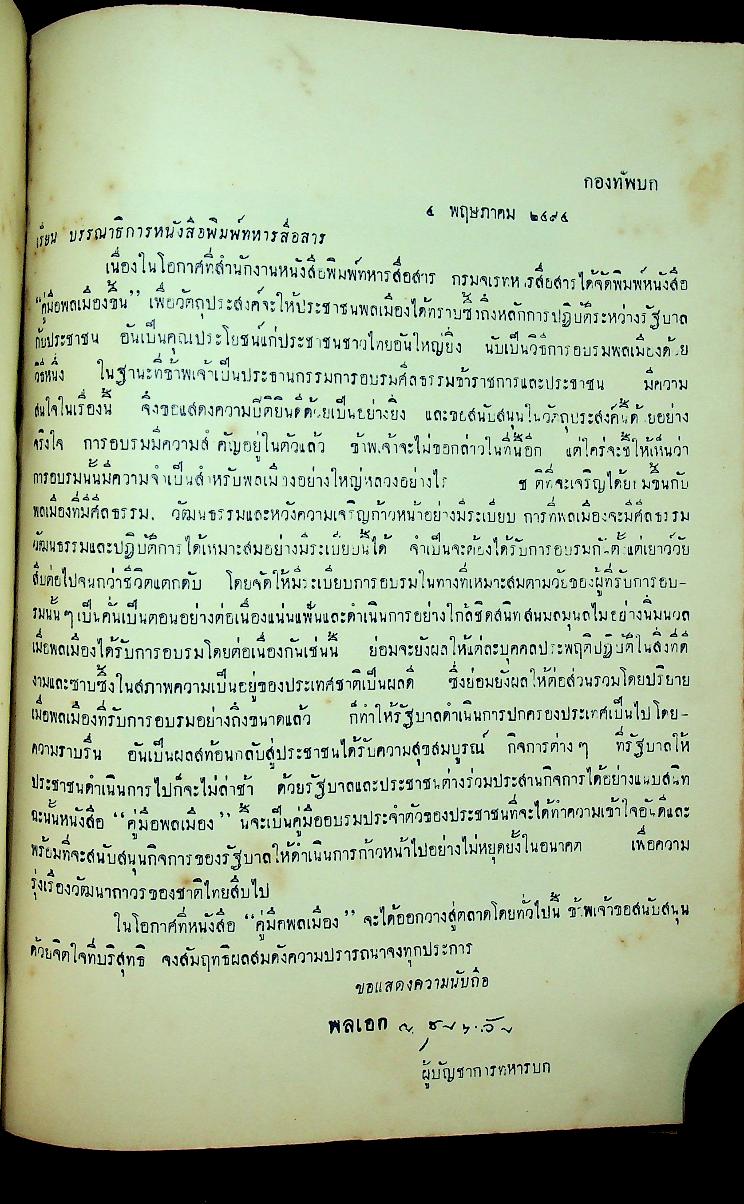 กองทัพบก
๔ พฤษภาคม ๒๔๙๔
เรียน บรรณาธิการหนังสือพิมพ์ทหารสื่อสาร
เนื่องในโอกาศที่สำนักงานหนังสือพิมพ์ทหารสื่อสาร กรมจเรทหารสื่อสารได้จัดพิมพ์หนังสือ
“คู่มือพลเมืองขึ้น” เพื่อวัตถุประสงค์จะให้ประชาชนพลเมืองได้ทราบซึ้งถึงหลักการปฏิบัติระหว่างรัฐบาล
กับประชาชน อันเป็นคุณประโยชน์แก่ประชาชนชาวไทยอันใหญ่ยิ่ง นับเป็นวิธีการอบรมพลเมืองด้วย
วิธีหนึ่ง ในฐานะที่ข้าพเจ้าเป็นประธานกรรมการอบรมศีลธรรมข้าราชการและประชาชน มีความ
สนใจในเรื่องนี้ จึงขอแสดงความปีติยินดีด้วยเป็นอย่างยิ่ง และขอสนับสนุนในวัตถุประสงค์นี้ด้วยอย่าง
จริงใจ การอบรมมีความสำคัญอยู่ในตัวแล้ว ข้าพเจ้าจะไม่ขอกล่าวในที่นี้อีก แต่ใคร่จะชี้ให้เห็นว่า
การอบรมนั้นมีความจำเป็นสำหรับพลเมืองอย่างใหญ่หลวงอย่างไร ชาติที่จะเจริญได้ย่อมขึ้นกับ
พลเมืองที่มีศีลธรรม, วัฒนธรรมและหวังความเจริญก้าวหน้าอย่างมีระเบียบ การที่พลเมืองจะมีศีลธรรม
วัฒนธรรมและปฏิบัติการได้เหมาะสมอย่างมีระเบียบนี้ได้ จำเป็นจะต้องได้รับการอบรมกันตั้งแต่เยาว์วัย
สืบต่อไปจนกว่าชีวิตแตกดับ โดยจัดให้มีระเบียบการอบรมในทางที่เหมาะสมตามวัยของผู้ที่รับการอบ-
รมนั้น ๆ เป็นคั่นเป็นตอนอย่างต่อเนื่องแน่นแฟ้นและดำเนินการอย่างใกล้ชิดสนิทสนมละมุนละไมอย่างนิ่มนวล
เมื่อพลเมืองได้รับการอบรมโดยต่อเนื่องกันเช่นนี้ ย่อมจะยังผลให้แต่ละบุคคลประพฤติปฏิบัติในสิ่งที่ดี
งามและซาบซึ้งในสภาพความเป็นอยู่ของประเทศชาติเป็นผลดี ซึ่งย่อมยังผลให้ต่อส่วนรวมโดยปริยาย
เมื่อพลเมืองที่รับการอบรมอย่างถึงขนาดแล้ว ก็ทำให้รัฐบาลดำเนินการปกครองประเทศเป็นไปโดย-
ความราบรื่น อันเป็นผลสท้อนกลับสู่ประชาชนได้รับความสุขสมบูรณ์ กิจการต่าง ๆ ที่รัฐบาลให้
ประชาชนดำเนินการไปก็จะไม่ล่าช้า ด้วยรัฐบาลและประชาชนต่างร่วมประสานกิจการได้อย่างแนบสนิท
ฉะนั้นหนังสือ “คู่มือพลเมือง” นี้จะเป็นคู่มืออบรมประจำตัวของประชาชนที่จะได้ทำความเข้าใจอันดีและ
พร้อมที่จะสนับสนุนกิจการของรัฐบาลให้ดำเนินการก้าวหน้าไปอย่างไม่หยุดยั้งในอนาคต เพื่อความ
รุ่งเรืองวัฒนาถาวรของชาติไทยสืบไป
ในโอกาศที่หนังสือ “คู่มือพลเมือง” จะได้ออกวางสู่ตลาดโดยทั่วไปนี้ ข้าพเจ้าขอสนับสนุน
ด้วยจิตใจที่บริสุทธิ จงสัมฤทธิผลสมดังความปรารถนาจงทุกประการ
ขอแสดงความนับถือ
พลเอก
ผู้บัญชาการทหารบก